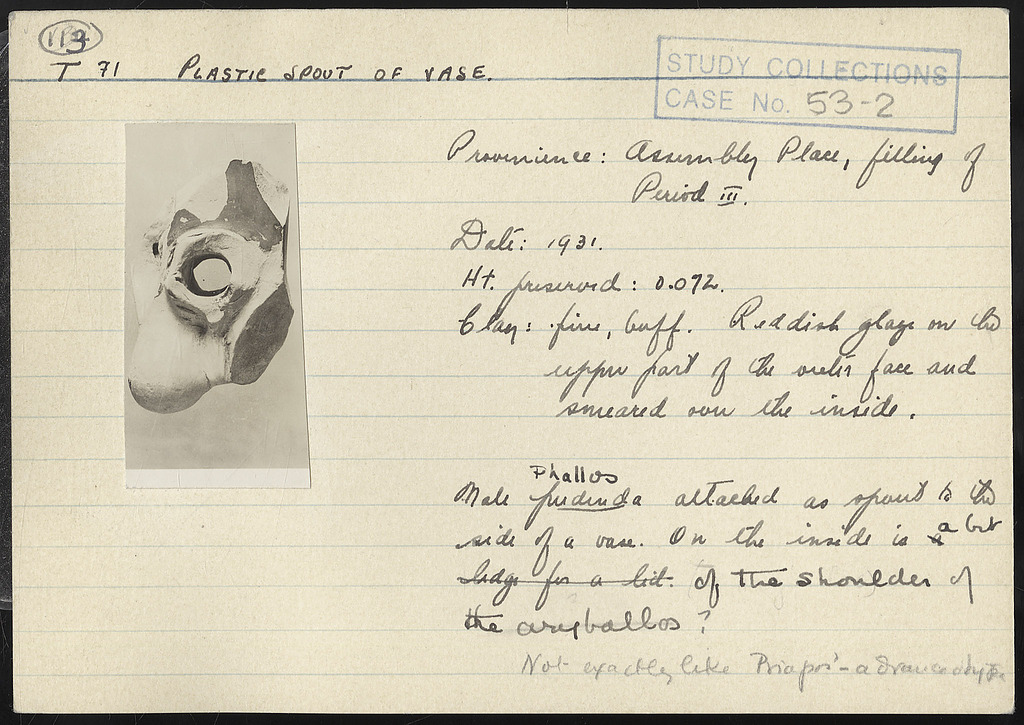 T 71 PLASTIC SPOUT OF VASE.
STUDY COLLECTIONS
CASE No. 53-2
Provenience: Assembly Place, filling of
Period III.
Date: 1931.
Ht. preserved: 0.072.
Clay: fine, buff. Reddish glaze on the
upper part of the outer face and
smeared over the inside.
Phallos
Male pudenda attached as spout to the
side of a vase. On the inside is a a bit
ledge for a lid. of the shoulder of
the aryballos?
Not exactly like Priapos' -